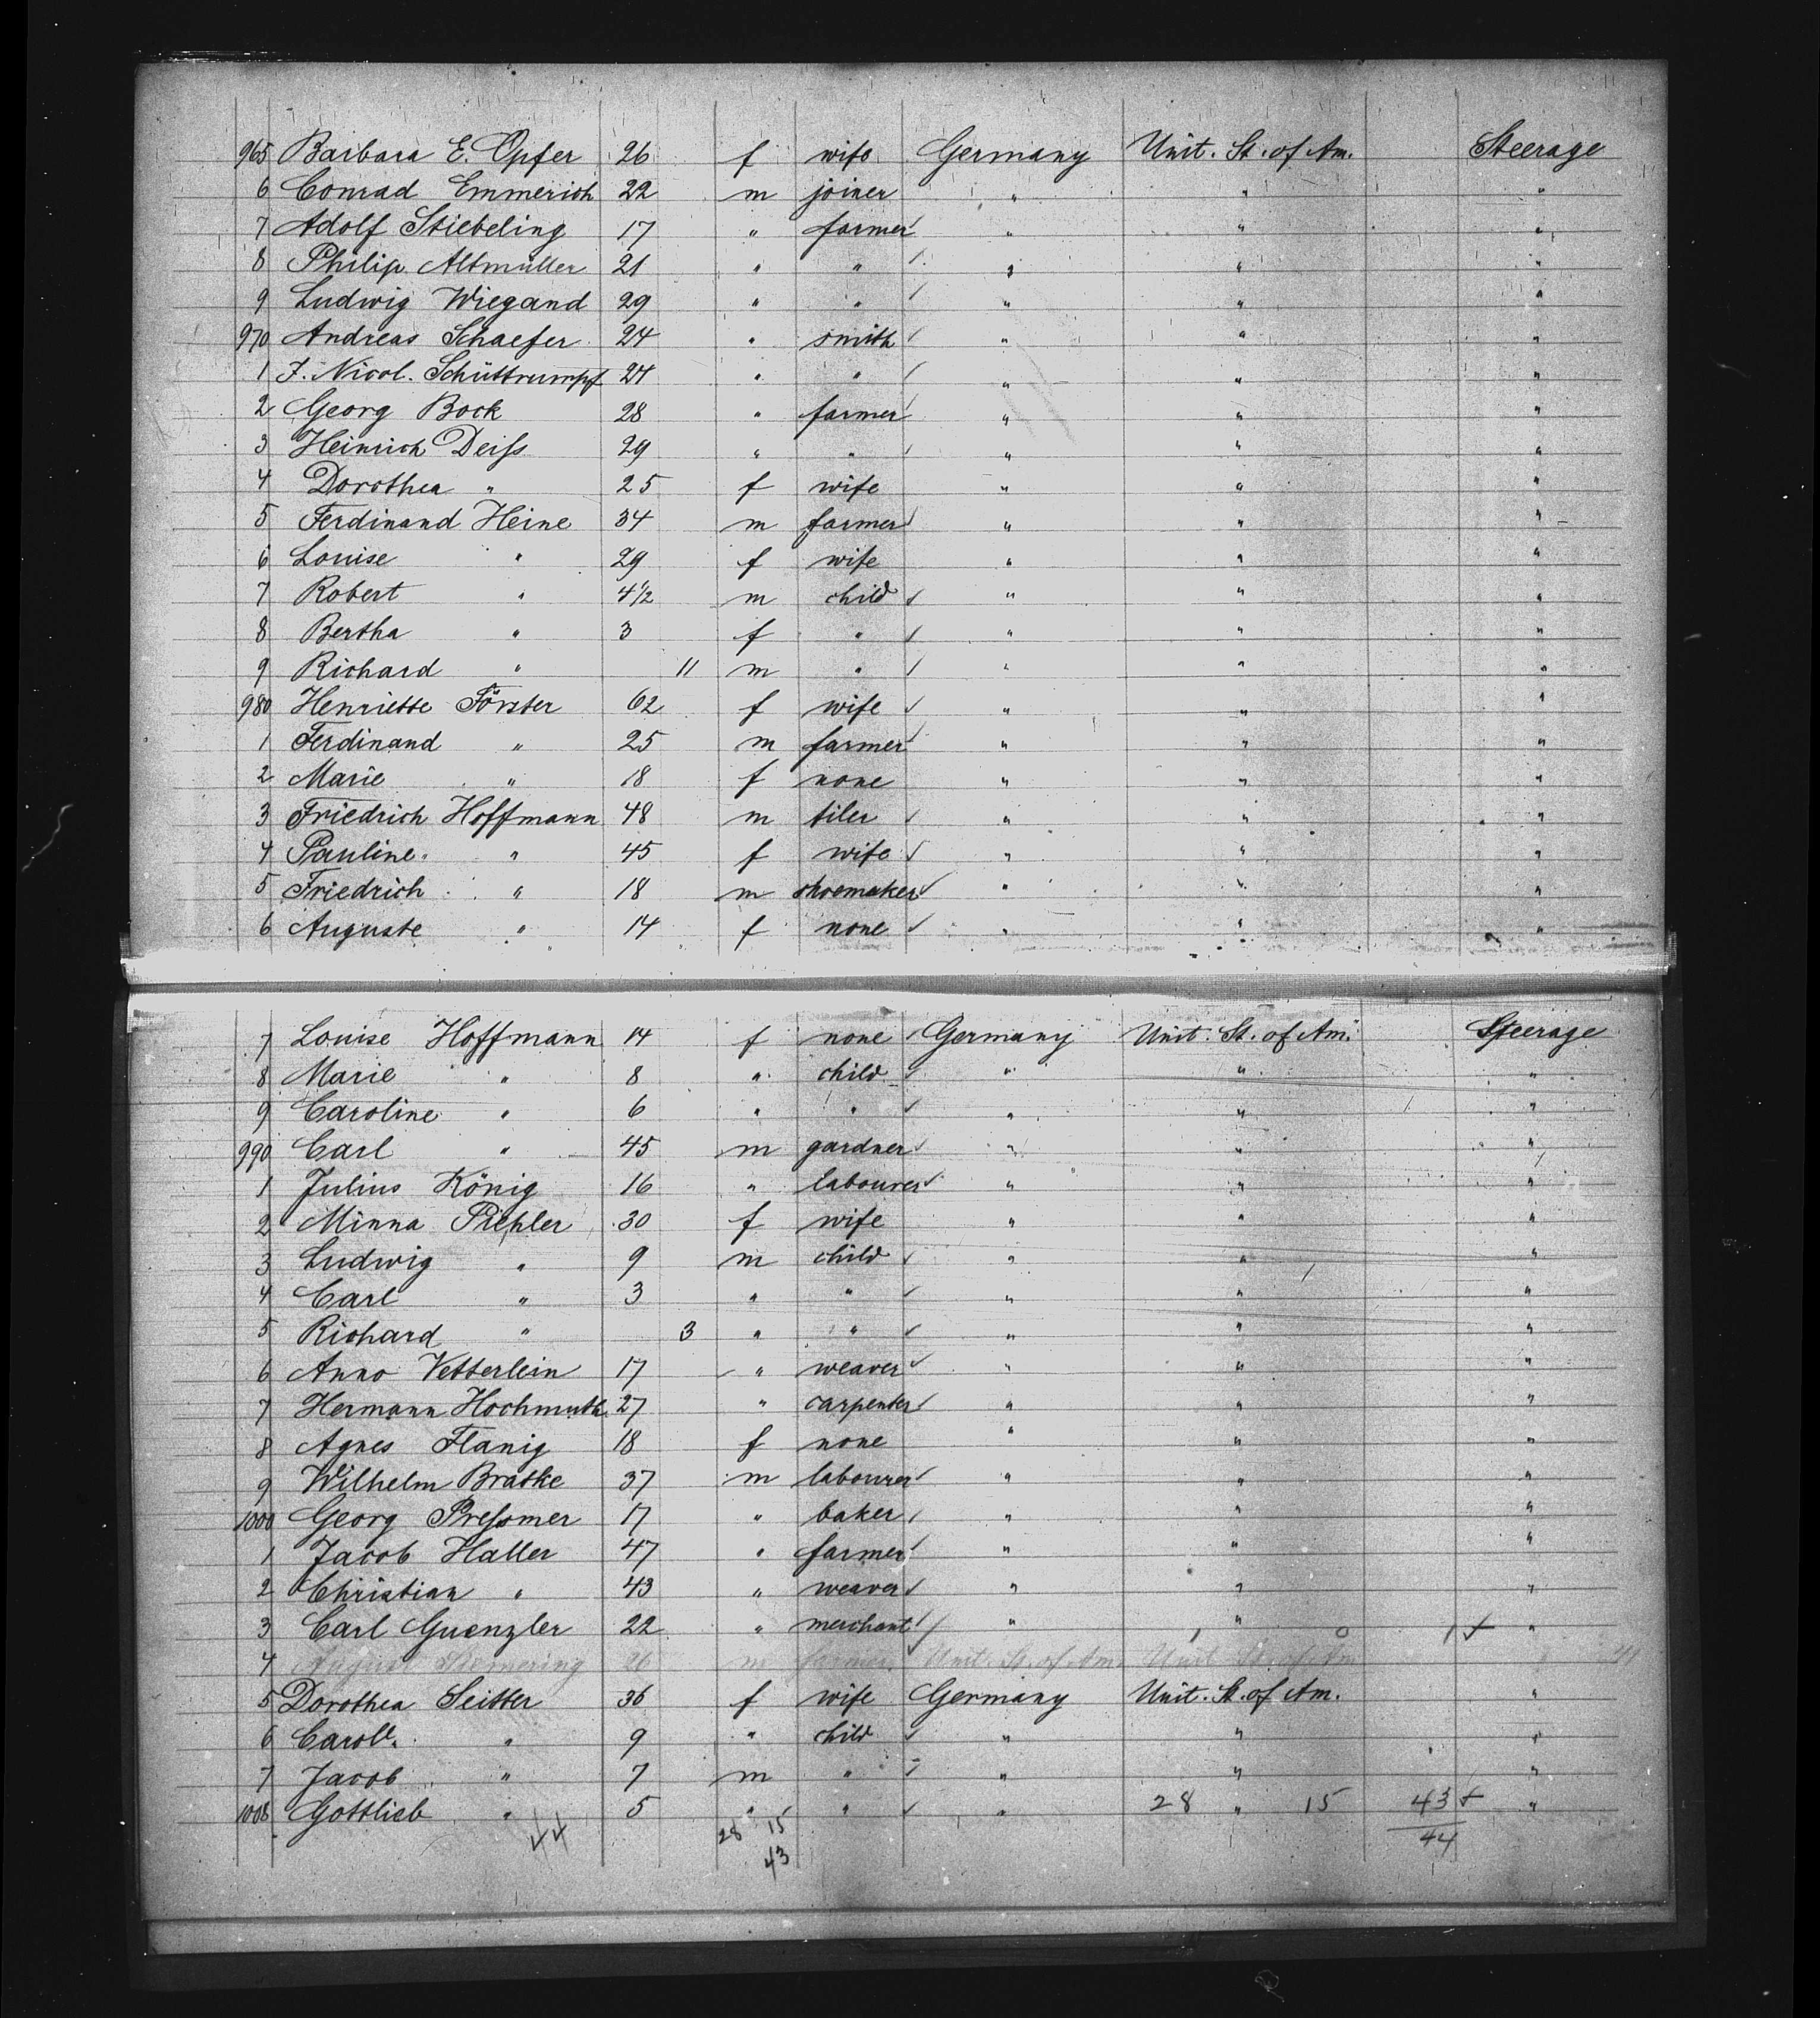 965 Barbara E. Opfer 26 f wife Germany Unit. St. of Am. Steerage
6 Conrad Emmerich 22 m joiner " " "
7 Adolf Stiebeling 17 " farmer " " "
8 Philip Altmüller 21 " " " " "
9 Ludwig Wiegand 29 " " " " "
970 Andreas Schaefer 24 " smith " " "
1 J. Nicol. Schüttrumpf 24 " " " " "
2 Georg Bock 28 " farmer " " "
3 Heinrich Deiſs 29 " " " " "
4 Dorothea " 25 f wife " " "
5 Ferdinand Heine 34 m farmer " " "
6 Louise " 29 f wife " " "
7 Robert " 4½ m child " " "
8 Bertha " 3 f " " " "
9 Richard " 11 m " " " "
980 Henriette Förster 62 f wife " " "
1 Ferdinand " 25 m farmer " " "
2 Marie " 18 f none " " "
3 Friedrich Hoffmann 48 m tiler " " "
4 Pauline " 45 f wife " " "
5 Friedrich " 18 m shoemaker " " "
6 Auguste " 14 f none " " "
7 Louise Hoffmann 14 f none Germany Unit. St. of Am. Steerage
8 Marie " 8 " child " " "
9 Caroline " 6 " " " " "
990 Carl " 45 m gardner " " "
1 Julius König 16 " labourer " " "
2 Minna Piehler 30 f wife " " "
3 Ludwig " 9 m child " " "
4 Carl " 3 " " " " "
5 Richard " 3 " " " " "
6 Anno Vetterlein 17 " weaver " " "
7 Hermann Hochmuth 27 " carpenter " " "
8 Agnes Flanig 18 f none " " "
9 Wilhelm Bratke 37 m labourer " " "
1000 Georg Preſsmer 17 " baker " " "
1 Jacob Haller 47 " farmer " " "
2 Christian " 43 " weaver " " "
3 Carl Guenzler 22 " merchant " " "
4 August 26 m farmer Unit. St. of Am. Unit. St. of Am "
5 Dorothea Seitter 36 f wife Germany Unit. St. of Am. "
6 Carol. " 9 " child " " "
7 Jacob " 7 m " " " "
1008 Gottlieb " 5 " " " 28 " 15 43 "
44 28 15 44
43